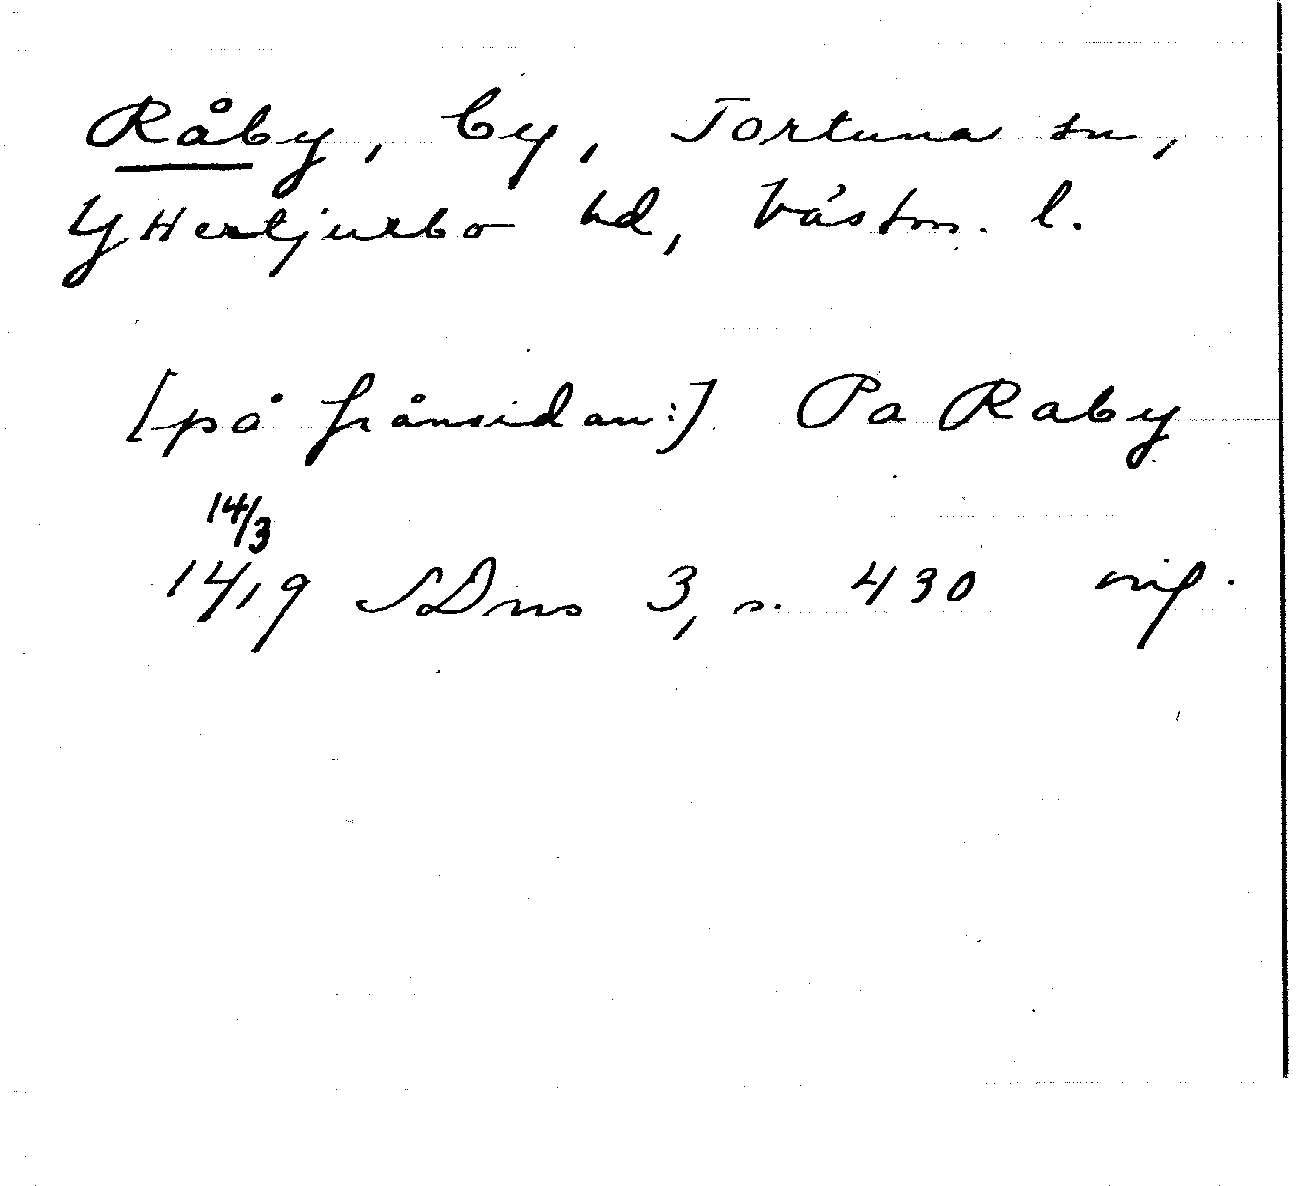 Råby, by, Tortuna sn,
Yttertjurbo hd, Västm. l.
[på frånsidan:] Pa Raby
14/3
1419 SDns 3, s. 430 orig.